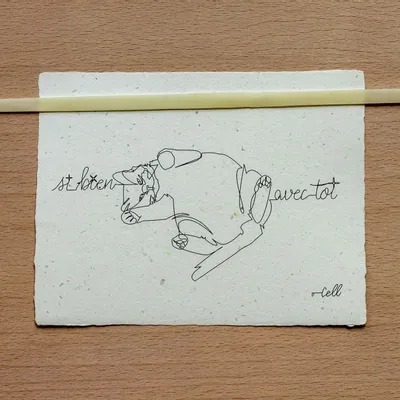 si bien avec toi
-Cell